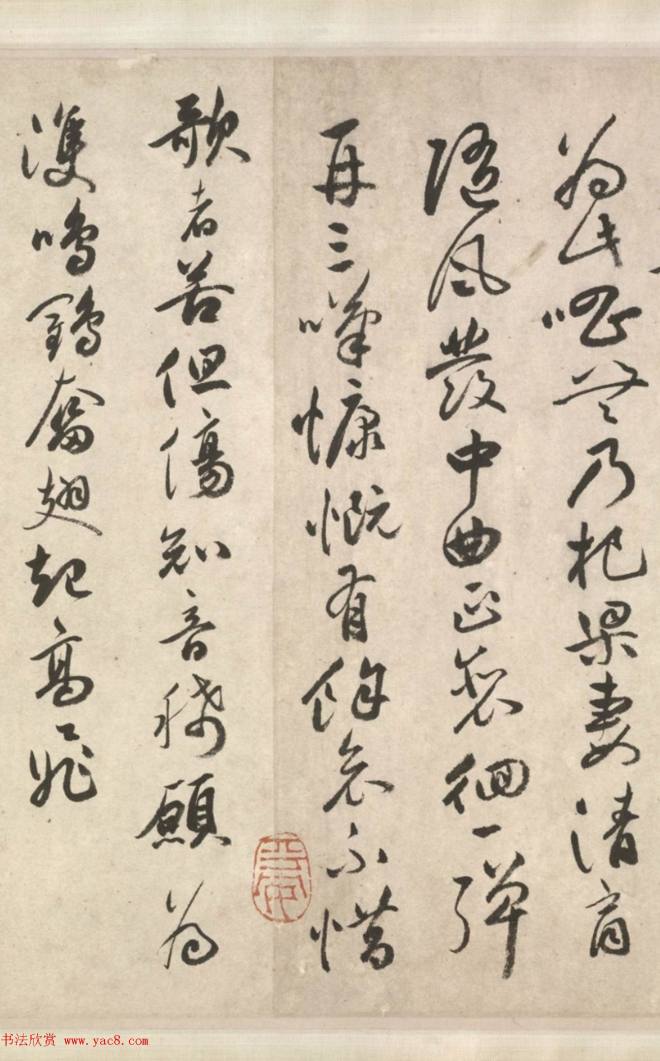 為此無乃杞梁妻清商
隨風發中曲正裴徊一彈
再三嘆慷慨有餘哀不惜
歌者苦但傷知音稀願為
雙鳴鶴奮翅起高飛
书法欣赏 www.yac8.com